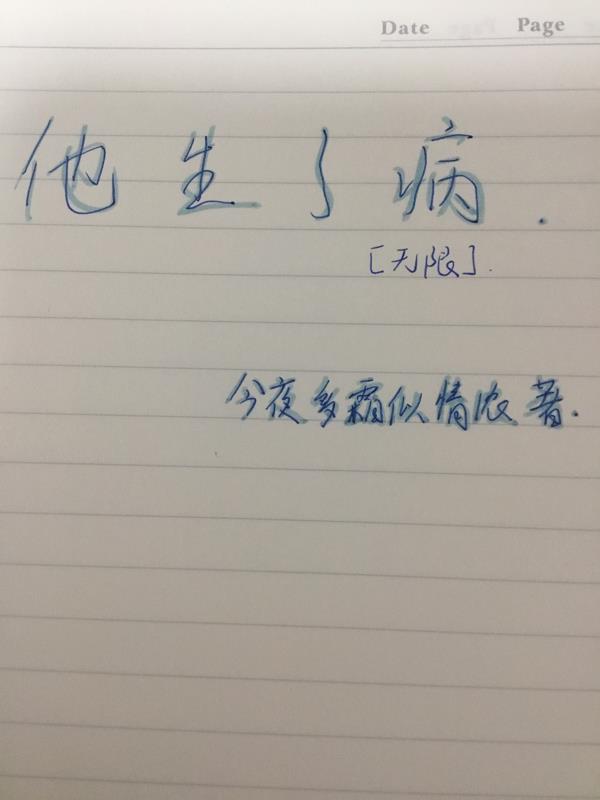 Date Page
他生了病.
[无限].
今夜多霜似情浓 著.